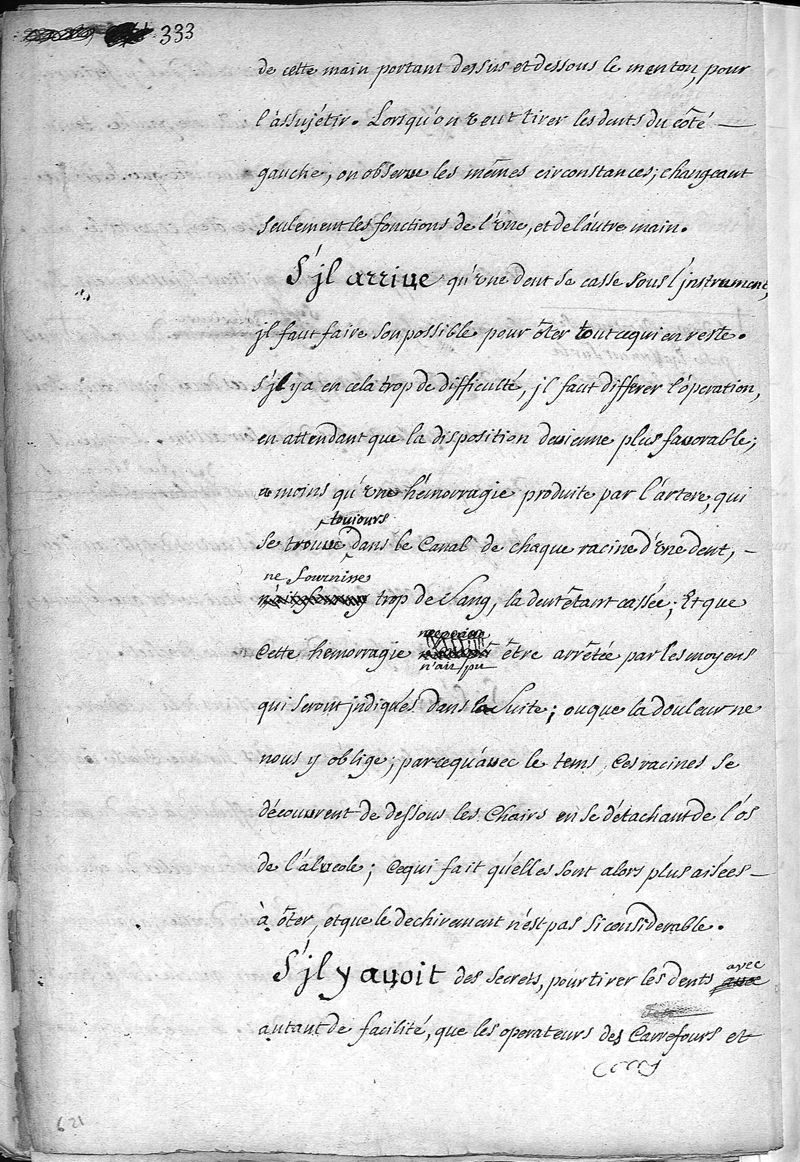 333
de cette main portant dessus et dessous le menton, pour
l'assujétir. Lorsqu'on veut tirer les dents du côté —
gauche, on observe les mêmes circonstances; changeant
seulement les fonctions de l'vne, et de l'autre main.
S'jl arriue qu'vne dent se casse sous l'jnstrument,
jl faut faire son possible pour ôter tout cequi en reste.
s'jl y a en cela trop de difficulté, jl faut differer l'óperation,
en attendant que la disposition deuienne plus fauorable;
a moins qu'vne hémorragie produite par l'artere, qui
toujours
se trouue dans le Canal de chaque racine d'vne dent, —
ne fournisse
trop de Sang, la dent êtant cassée; Et que
cette hemorragie
n'ait pu être arrêtée par les moyens
qui seront jndiqués dans la Suite; ou que la douleur ne
nous y oblige; parcequ'auec le tems, Ces racines se
découurent de dessous les Chairs en se détachant de l'os
de l'alveole; Cequi fait qu'elles sont alors plus aisées —
à ôter, et que le dechirement n'est pas si considerable.
S'jl y auoit des secrets, pour tirer les dents avec
autant de facilité, que les operateurs des Carrefours et
621